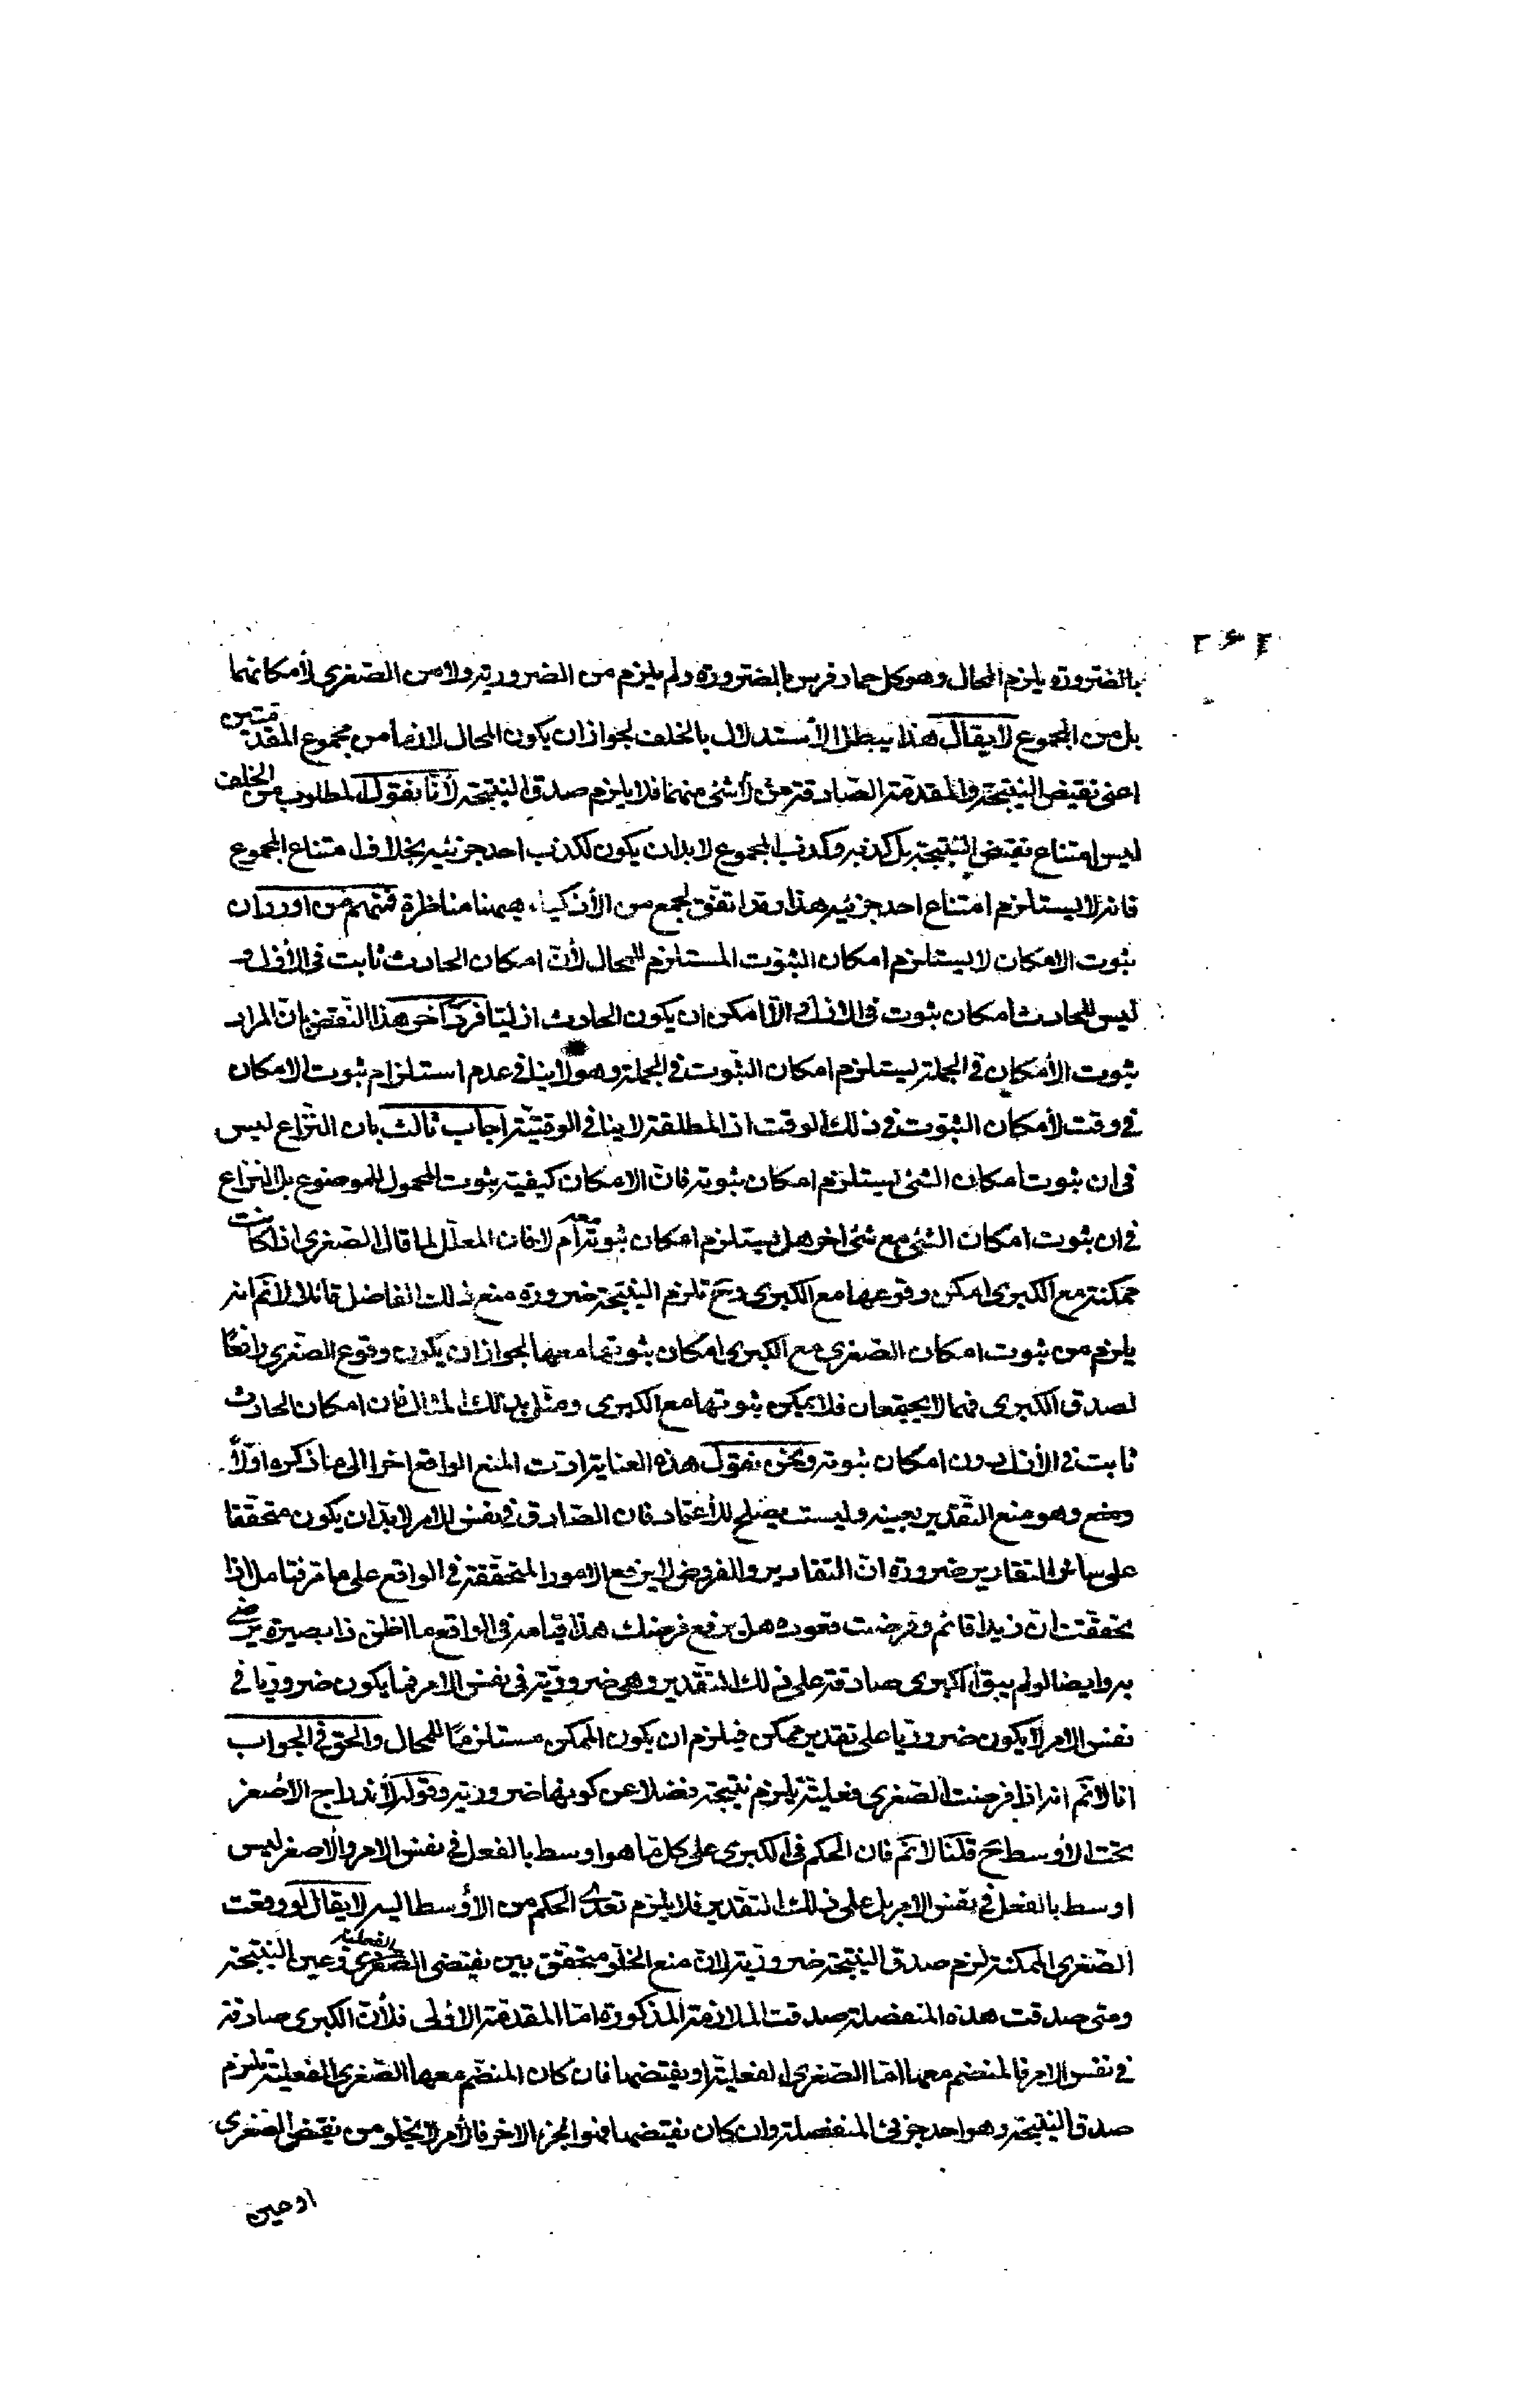 ٢٦٢
بالضرورة يلزم المحال وهو كل حمار فرس بالضرورة ولم يلزم من الضرورية ولا من الصغرى لأمكانهما
بل من المجموع لا يقال هذا يبطل الأستدلال بالخلف لجواز ان يكون المحال لازما من مجموع المقدمتين
اعنى نقيض النتيجة والمقدمة الصادقة من لا شئ منهما فلا يلزم صدق النتيجة لأنا نقول المطلوب من الخلف
ليس امتناع نقيض النتيجة بل كذبه وكذب المجموع لا بد ان يكون لكذب احد جزئيه بخلاف امتناع المجموع
فانه لا يستلزم امتناع احد جزئيه هذا وقد اتفق لجمع من الأذكياء ههنا مناظرة فمنهم من اورد ان
ثبوت الامكان لا يستلزم امكان الثبوت المستلزم للمحال لأن امكان الحادث ثابت فى الأزل و
ليس للحادث امكان ثبوت فى الازل والا امكن ان يكون الحادث ازليا فرد آخر هذا النقض بان المراد
ثبوت الأمكان فى الجملة يستلزم امكان الثبوت فى الجملة وهو لا ينافى عدم استلزام ثبوت الامكان
فى وقت لأمكان الثبوت فى ذلك الوقت اذ المطلقة لا ينافى الوقتية اجاب ثالث بان النزاع ليس
فى ان ثبوت امكان الشئ يستلزم امكان ثبوته فان الامكان كيفية ثبوت المحمول للموضوع بل النزاع
فى ان ثبوت امكان الشئ مع شئ اخر هل يستلزم امكان ثبوته معه أم لا فان المعلل لما قال الصغرى اذا كانت
ممكنة مع الكبرى امكن وقوعها مع الكبرى وح تلزم النتيجة ضرورة منع ذلك الفاضل قائلا لا نم انه
يلزم من ثبوت امكان الصغرى مع الكبرى امكان ثبوتها معها لجواز ان يكون وقوع الصغرى رافعا
لصدق الكبرى فهما لا يجتمعان فلا يمكن ثبوتها مع الكبرى ومثل بذلك المثال فان امكان الحادث
ثابت فى الأزل دون امكان ثبوته ونحن نقول هذه العناية ادت المنع الواقع اخرا الى ما ذكره اولاً
ومنع وهو منع التقدير بعينه وليست يصلح للأعتماد فان الصادق فى نفس الامر لا بد ان يكون متحققا
على سائر التقادير ضرورة ان التقادير والفروض لا يرفع الامور المتحققة فى الواقع على ما عرفتا مل اذا
تحققت ان زيدا قائم وفرضت قعوده هل يرفع فرضك هذا قيامه فى الواقع ما اظن ذا بصيرة يرضى
به وايضا لو لم يبق الكبرى صادقة على ذلك التقدير وهى ضرورية فى نفس الامر فما يكون ضروريا فى
نفس الامر لا يكون ضروريا على تقدير ممكن فيلزم ان يكون الممكن مستلزمًا للمحال والحق فى الجواب
انا لا نم انه اذا فرضت الصغرى فعلية يلزم نتيجة فضلا عن كونها ضرورية وقوله لأندراج الاصغر
تحت الأوسط ح قلنا لا نم فان الحكم فى الكبرى على كل ما هو اوسط بالفعل فى نفس الامر والاصغر ليس
اوسط بالفعل فى نفس الامر بل على ذلك التقدير فلا يلزم تعدى الحكم من الأوسط اليه لا يقال لو وقعت
الصغرى الممكنة لزم صدق النتيجة ضرورية لان منع الخلو متحقق بين نقيض الصغرى الفعلية وعين النتيجة
ومتى صدقت هذه المنفصلة صدقت الملازمة المذكورة اما المقدمة الاولى فلأن الكبرى صادقة
فى نفس الامر فالمنضم معها اما الصغرى الفعلية او نقيضها فان كان المنضم معها الصغرى الفعلية يلزم
صدق النتيجة وهو احد جزئى المنفصلة وان كان نقيضها فهو الجزء الاخر فالأمر لا يخلو من نقيض الصغرى
او عين